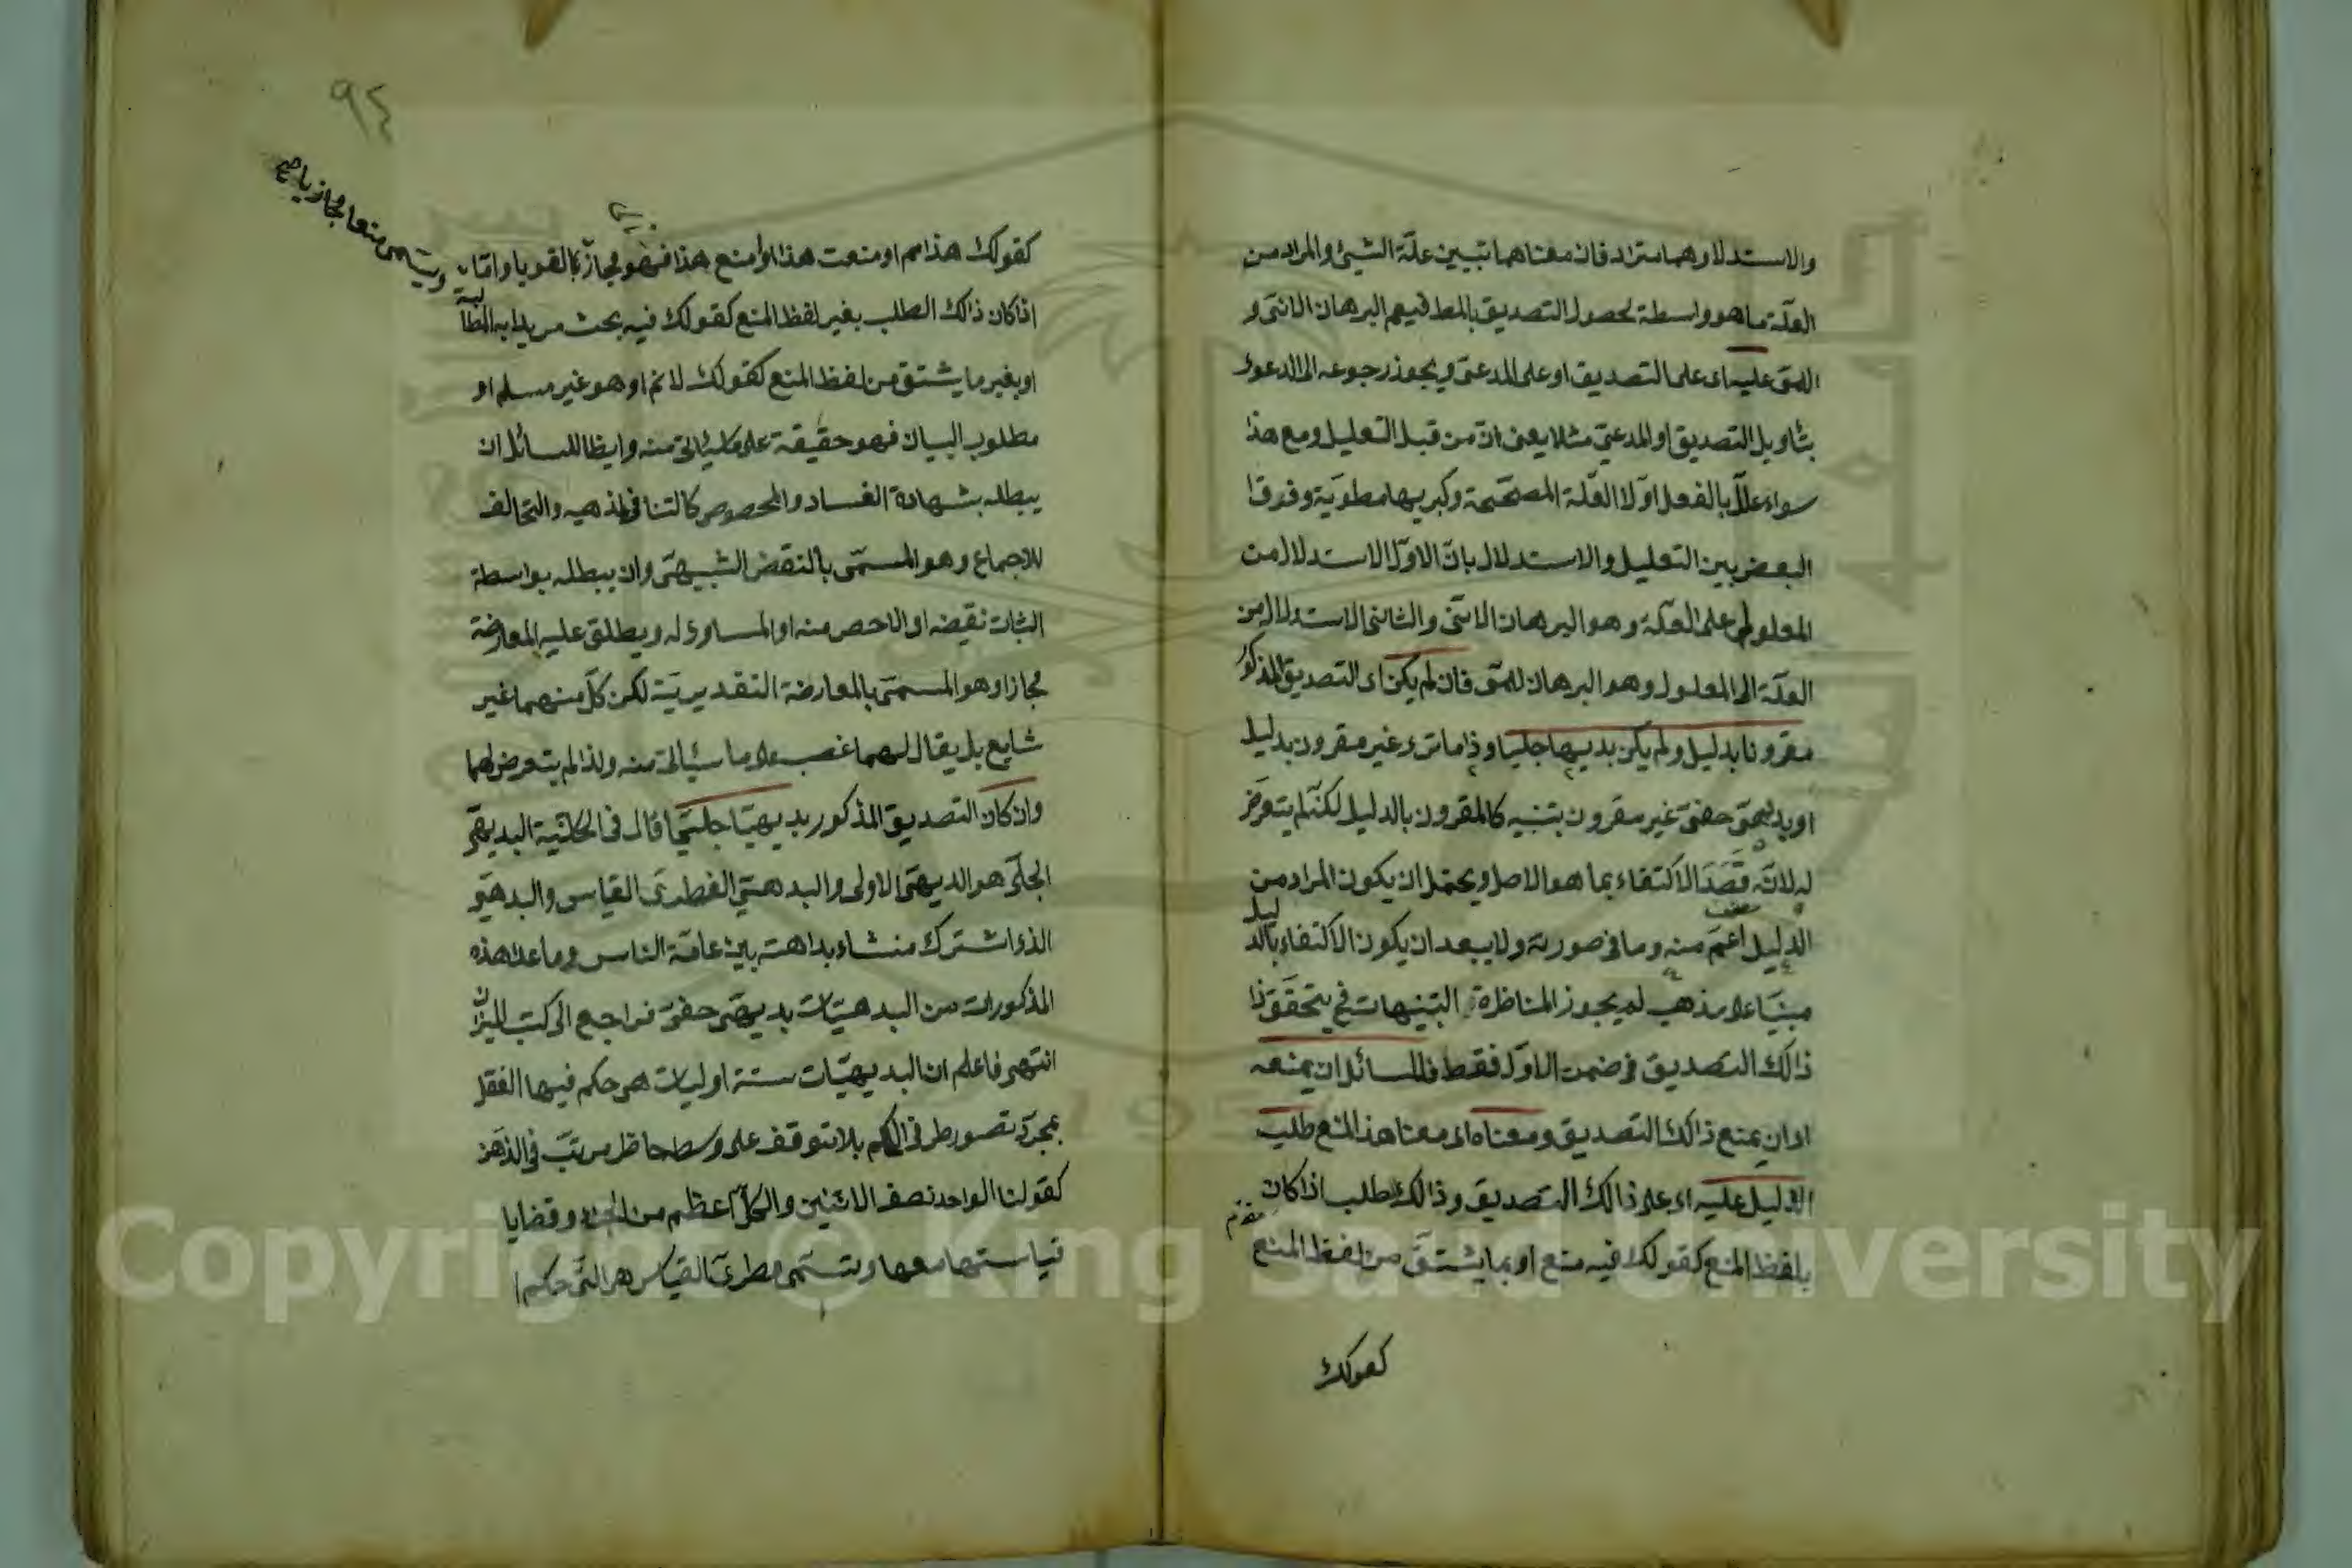 والاستدلا وهما مترادفان معناهما تبيين علّة الشيئ والمراد من
العلّة ما هو واسطة لحصول التصديق بالمط فيعم البرهان الانىّ و
اللمىّ عليه اى على التصديق او على المدعىّ ويجوز رجوعه الى الدعوى
بتاويل التصديق او المدعىّ مثلا يعنى انّ من قبل التعليل ومع هذا
سواء علّل بالفعل اوّلا العّلة المصحّحة وكبريها مطويّة وفرق
البعض بين التعليل والاستدلال بانّ الاوّل الاستدلال من
المعلول على العلّة وهو البرهان الانىّ والثانى الاستدلال من
العلّة الى المعلول وهو البرهان للمىّ فان لم يكن اى التصديق المذكور
مقرونا بدليل ولم يكن بديهيا جليّا وذا ما نرى غير مقرون بدليل
او بديهىّ خفىّ غير مقرون بتنبيه كالمقرون بالدليل لكنّه لم يتعرّض
له لانّه قصد الاكتفاء بما هو الاصل ويحتمل ان يكون المراد من
الدليل اعمّ منه وما فى صورته ولا يبعد ان يكون الاكتفاء بالدليل
مبنيّا على مذهب لم يجوز المناظرة التنبيهات فح يتحقّق
ذالك التصديق فى ضمن الاوّل فقط فللسائل ان يمنعه
اى ان يمنع ذالك التصديق ومعناه اى معنا هذ المنع طلب
الدليل عليه اى على ذالك التصديق وذالك الطلب اذا كان
بلفظ المنع كقولك فيه منع او بما يشتقّ من لفظ المنع
كقولك
٩٤
كقولك هذا مم او منعت هذا او امنع هذا فهو مجاز بالقويا وامّا
ويسمى منعا مجازيا صح
اذا كان ذالك الطلب بغير لفظ المنع كقولك فيه بحث مريدا به المطالبة
او بغير ما يشتق من لفظ المنع كقولك لا نم او هو غير مسلم او
مطلوب البيان فهو حقيقة على ما سيئالى منه وايظا للسائل ان
يبطله بشهادة الفساد والمحصوص كالتنافى لمذهبه والتخالف
للاجماع وهو المسمّى بالنقض الشبيهىّ وان يبطله بواسطة
اثبات نقيضه او الاخص منه او المساوى له ويطلق عليه المعارضة
مجازا وهو المسمّى بالمعارضة التقديريّة لكن كلّ منهما غير
شايع بل يقال لهما غصب على ما سيئالى منه ولذا لم يتعرض لهما
وان كان التصديق المذكور بديهيّا جليّا قال فى الحاشية البديهىّ
الجلّى هو البديهىّ الاولى والبدهىّ الفطرىّ القياس والبدهىّ
الذى اشترك منشاء بداهته بين عامّة الناس وما عدا هذه
المذكورات من البدهيّات بديهىّ خفىّ فراجع الى كتب الميزان
انتهى فاعلم ان البديهيّات ستة اوليات هى حكم فيها العقل
بمجرّد تصور طرفى الحكم بلا توقف على وسط حاظر مرتّب فى الذهن
كقولنا الواحد نصف الاثنين والكلّ اعظم من الجزء وقضايا
قياستها معها وتسّمى فطرىّ القياس هى التى حكم